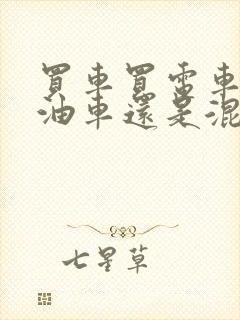 買車買電車
油車還是混
七星草